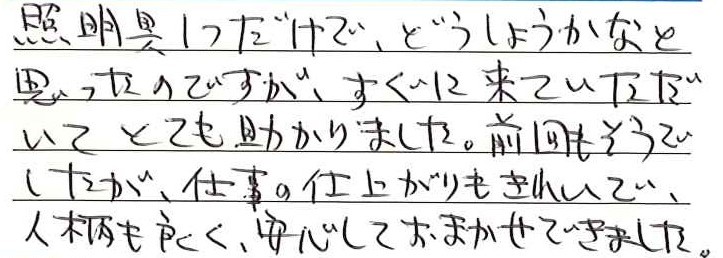 照明具1つだけで、どうしようかなと
思ったのですが、すぐに来ていただ
いてとても助かりました。前回もそうで
したが、仕事の仕上がりもきれいで、
人柄も良く、安心しておまかせできました。